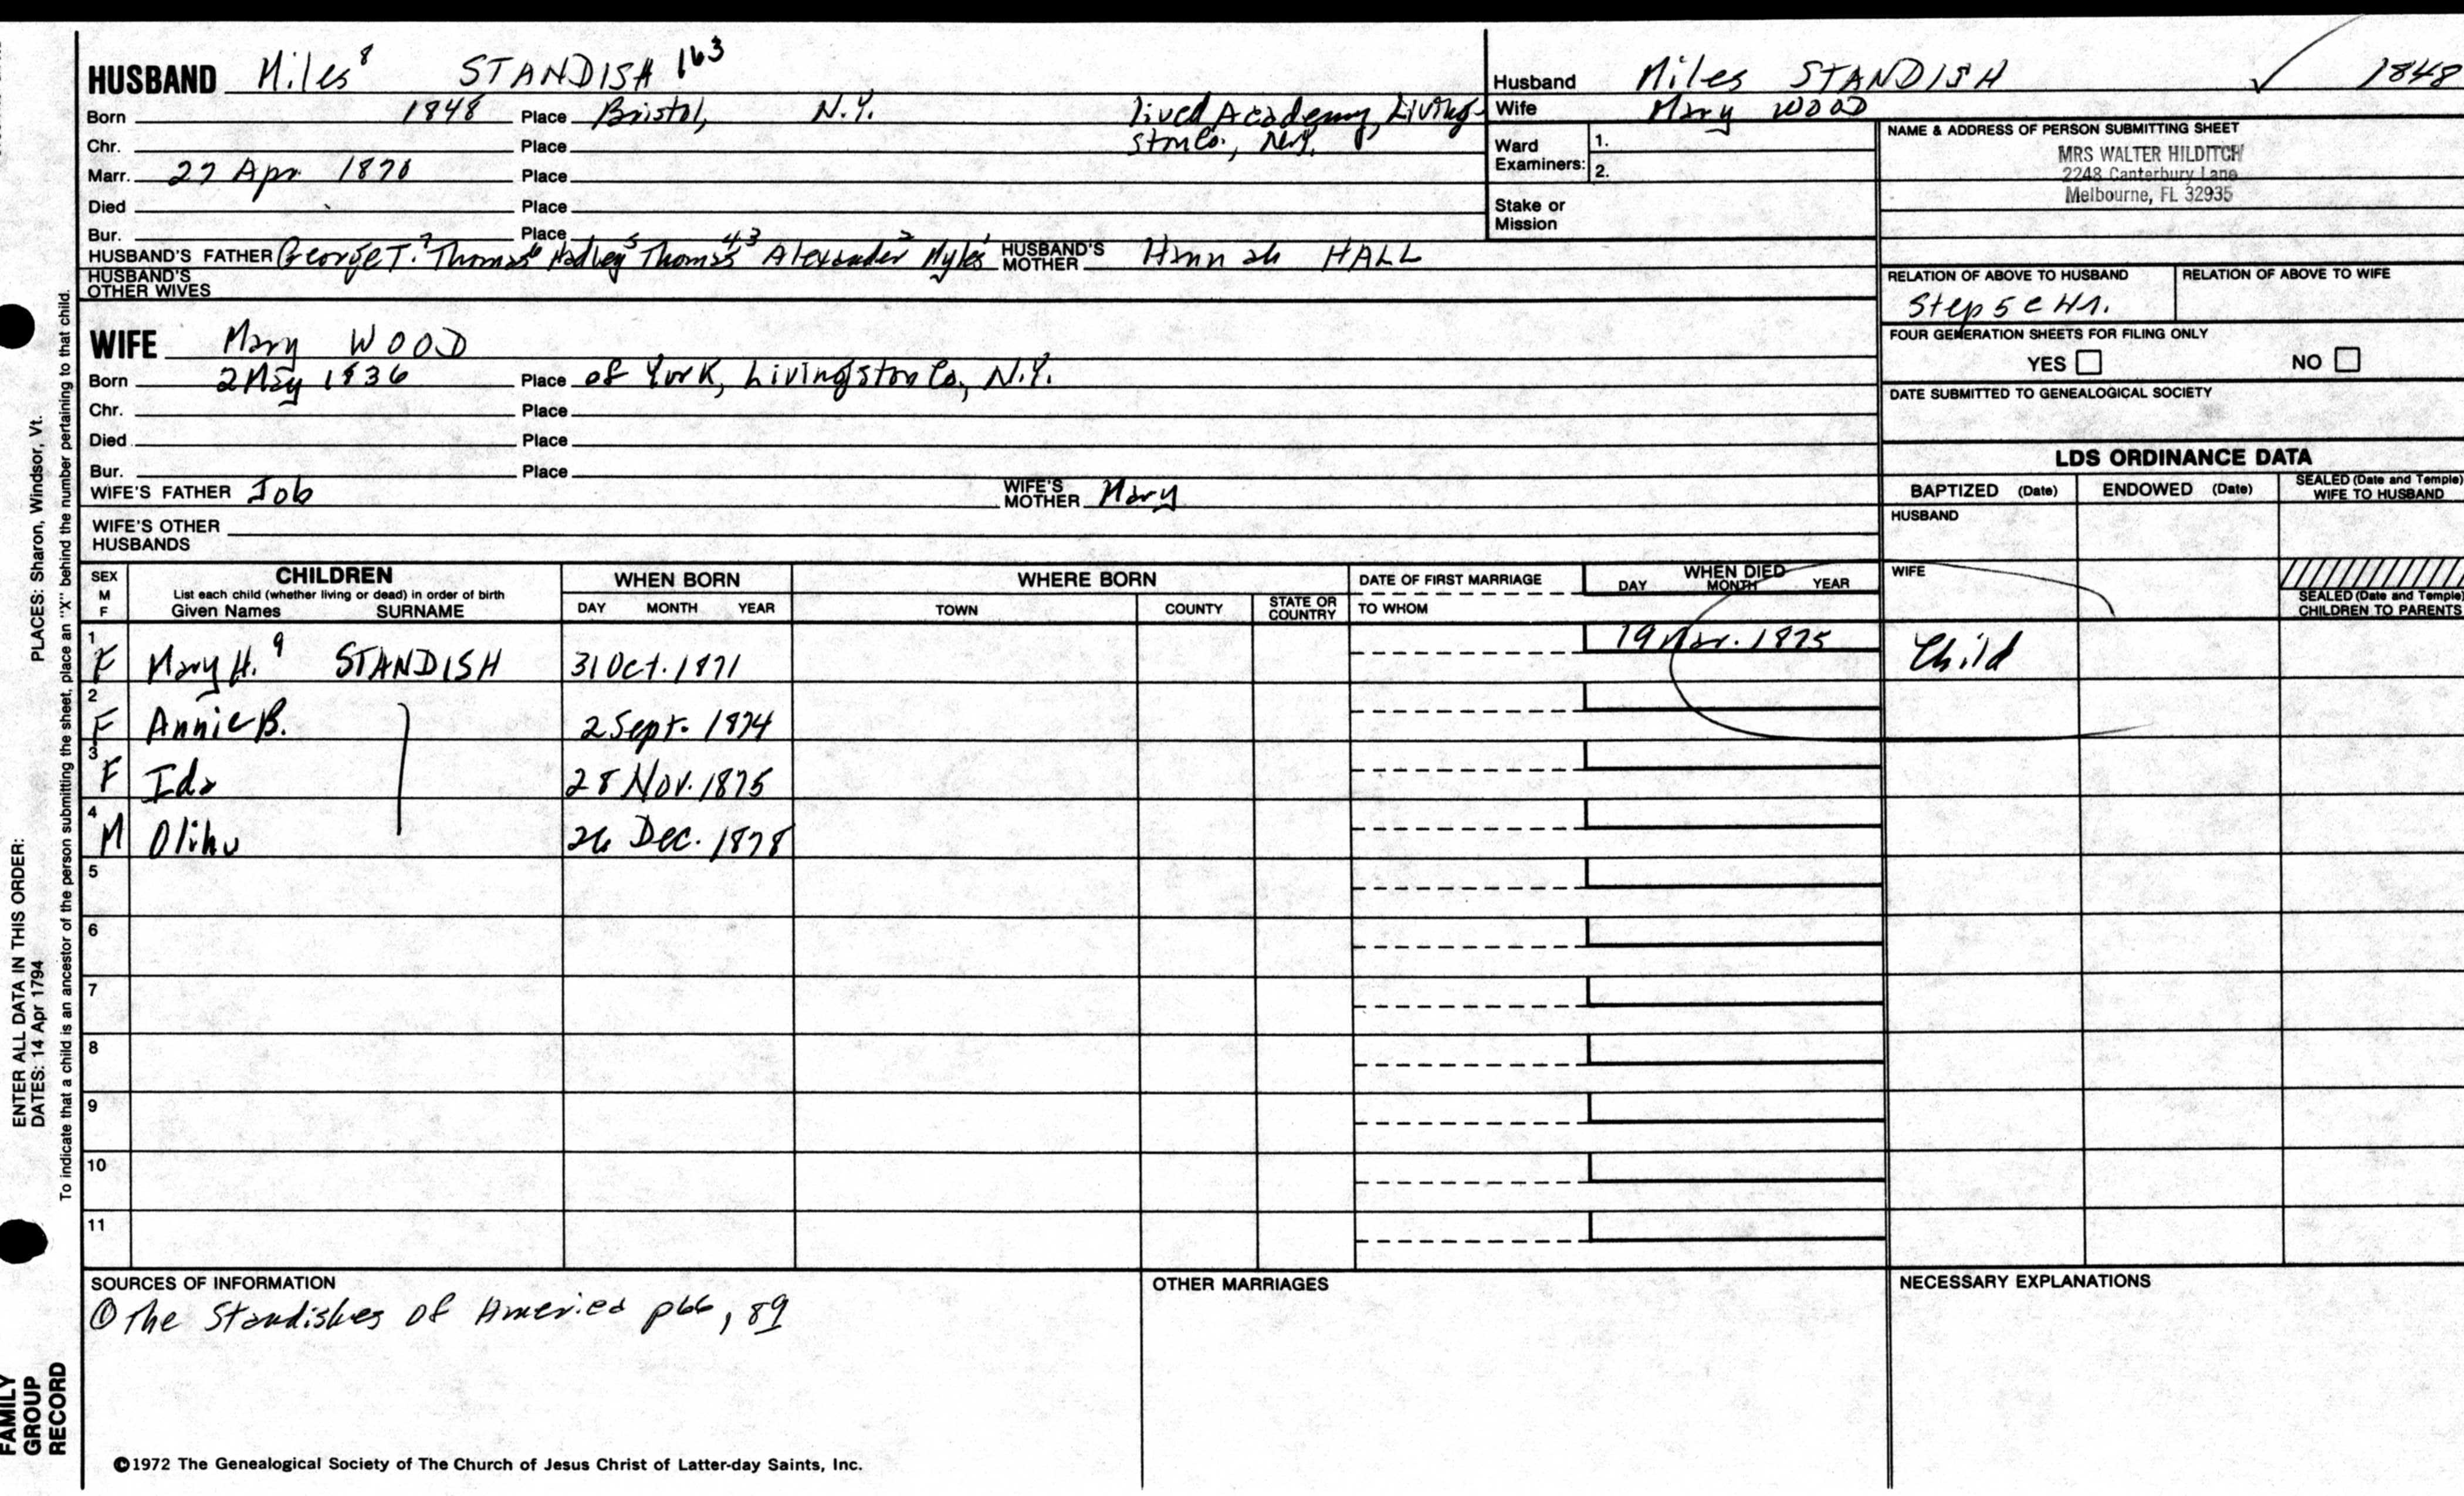 HUSBAND Miles⁸ STANDISH 163
Born 1848 Place Bristol, N.Y. lived Academy, Livings-
Chr. Place ston Co., N.Y.
Marr. 27 Apr 1870 Place
Died Place
Bur. Place
HUSBAND'S FATHER George T.⁷ Thomas⁶ Hadley⁵ Thomas⁴ ³ Alexander² Myles¹ HUSBAND'S MOTHER Hannah HALL
HUSBAND'S OTHER WIVES
Husband Miles STANDISH ✓ 1848
Wife Mary WOOD
Ward Examiners: 1.
2.
Stake or Mission
NAME & ADDRESS OF PERSON SUBMITTING SHEET
MRS WALTER HILDITCH
2248 Canterbury Lane
Melbourne, FL 32935
RELATION OF ABOVE TO HUSBAND RELATION OF ABOVE TO WIFE
Step 5 c
FOUR GENERATION SHEETS FOR FILING ONLY
YES NO
DATE SUBMITTED TO GENEALOGICAL SOCIETY
WIFE Mary WOOD
Born 2 May 1836 Place of York, Livingston Co, N.Y.
Chr. Place
Died Place
Bur. Place
WIFE'S FATHER Job WIFE'S MOTHER Mary
WIFE'S OTHER HUSBANDS
LDS ORDINANCE DATA
BAPTIZED (Date) ENDOWED (Date) SEALED (Date and Temple) WIFE TO HUSBAND
HUSBAND
WIFE
SEALED (Date and Temple) CHILDREN TO PARENTS
SEX M F CHILDREN List each child (whether living or dead) in order of birth Given Names SURNAME
WHEN BORN DAY MONTH YEAR
WHERE BORN TOWN COUNTY STATE OR COUNTRY
DATE OF FIRST MARRIAGE TO WHOM
WHEN DIED DAY MONTH YEAR
1 F Mary H.⁹ STANDISH 31 Oct. 1871 19 Mar. 1875 Child
2 F Annie B. 2 Sept. 1874
3 F Ida 28 Nov. 1875
4 M Olihu 26 Dec. 1878
5
6
7
8
9
10
11
SOURCES OF INFORMATION
① The Standishes of America p66, 89
OTHER MARRIAGES
NECESSARY EXPLANATIONS
©1972 The Genealogical Society of The Church of Jesus Christ of Latter-day Saints, Inc.
ENTER ALL DATA IN THIS ORDER:
DATES: 14 Apr 1794 PLACES: Sharon, Windsor, Vt.
To indicate that a child is an ancestor of the person submitting the sheet, place an "X" behind the number pertaining to that child.
FAMILY
GROUP
RECORD